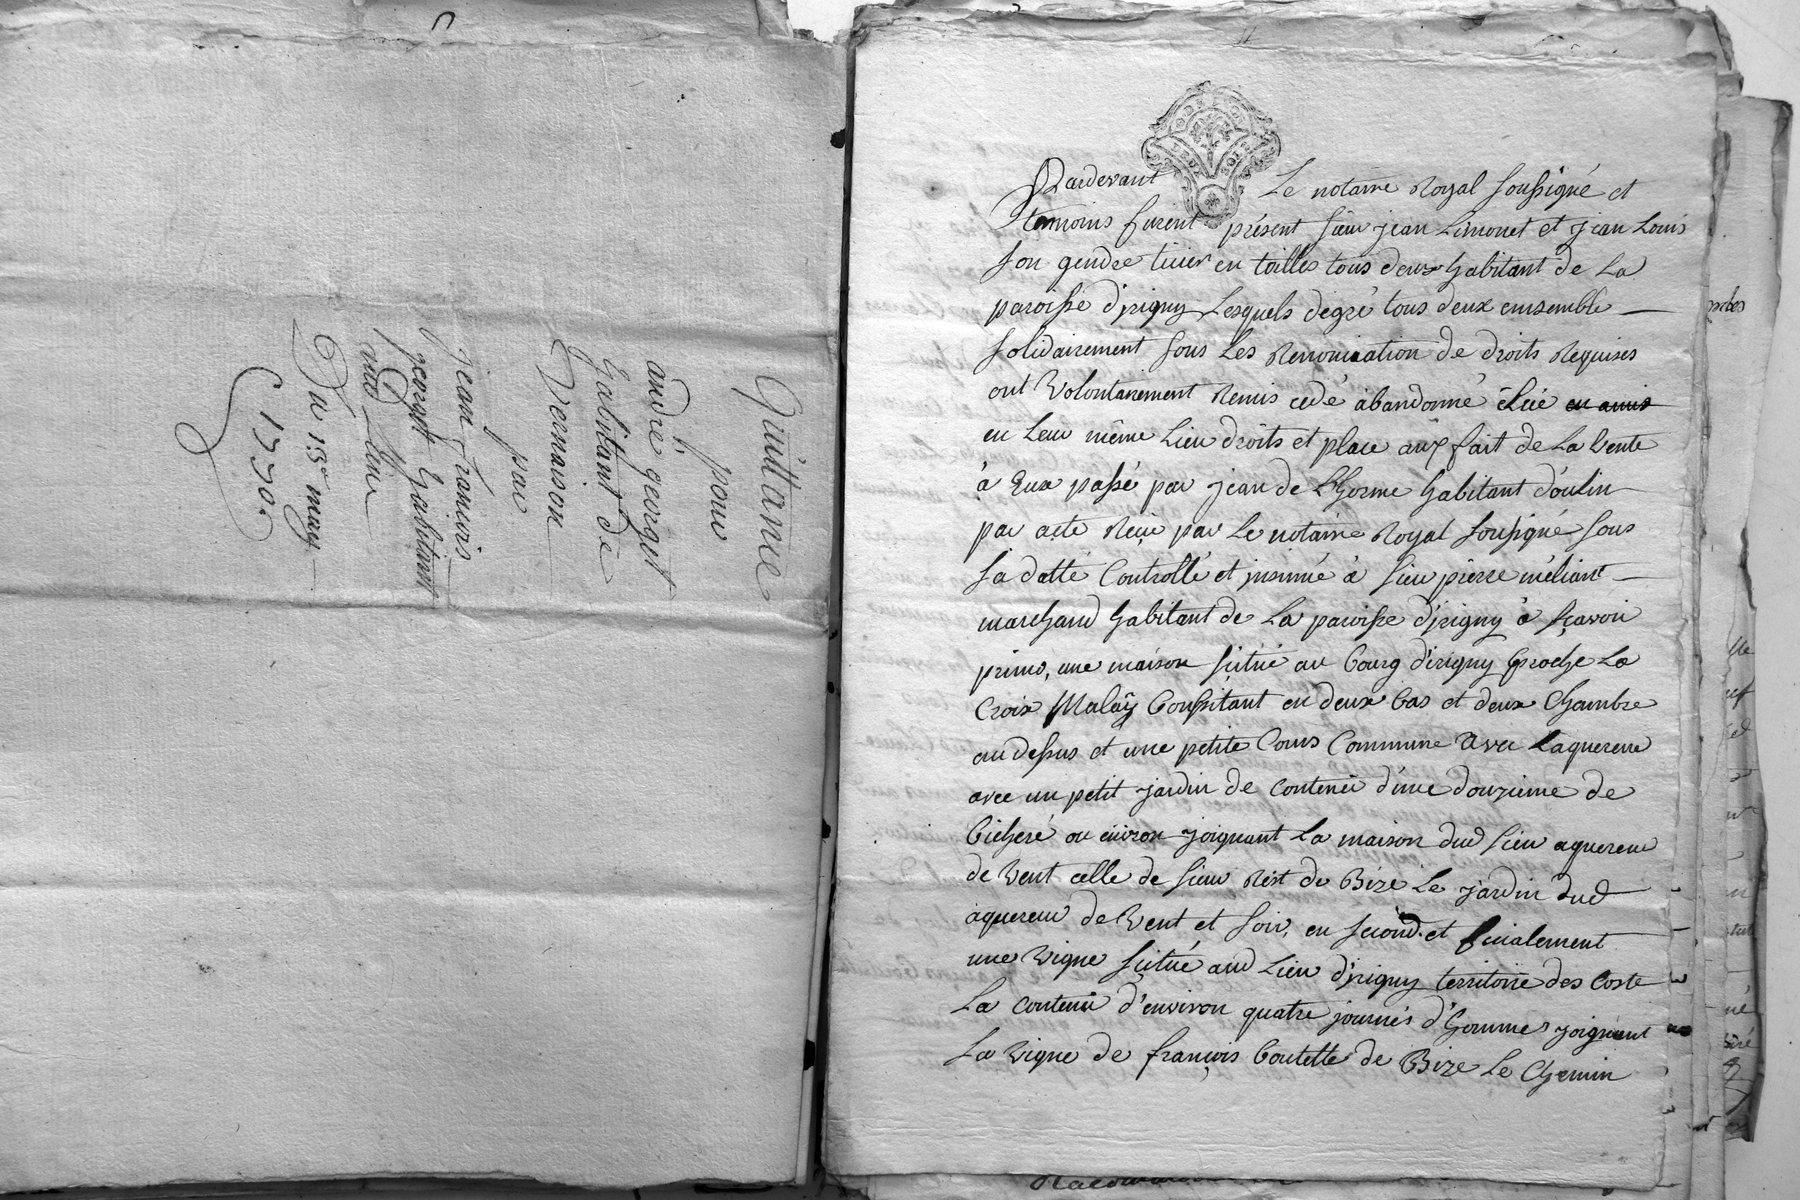 Quittance
pour
andré georget
habitant de
Vernaison
par
jean francois
georget habitant
aud Lieu
Du 15e may
1770.
Pardevant Le notaire Royal soussigné et
temoins furent présent sieur jean Limonet et jean Louis
son gendre en toilles tous deux habitant de La
paroisse d'jrigny Lesquels dégré tous deux ensemble
solidairement sous Les Renonciation de droits Requises
ont Volontairement Remis cedé abandonné
en Leur même Lieu droits et place aux fait de La Vente
à Eux passé par jean de L'horme habitant d'oulin
par acte Reçu par Le notaire Royal soussigné sous
sa datte Controllé et jnsinué à sieur pierre méliant
marchand habitant de La paroisse d'jrigny à sçavoir
primo, une maison scitué au bourg d'irigny proche La
Croix Malaÿ Consistant en deux bas et deux Chambre
au dessus et une petite Cours Commune avec Laquereur
avec un petit jardin de contenü d'une douzieme de
bicheré ou environ joignant La maison dud sieur aquereur
de Vent celle de sieur de Bize Le jardin dud
aquereur de Vent et soir, en second et finialement
une Vigne scitué aud Lieu d'jrigny territoire des Coste
La contenü d'environ quatre journés d'homme joignent
La Vigne de françois Coutelle de Bize Le Chemin